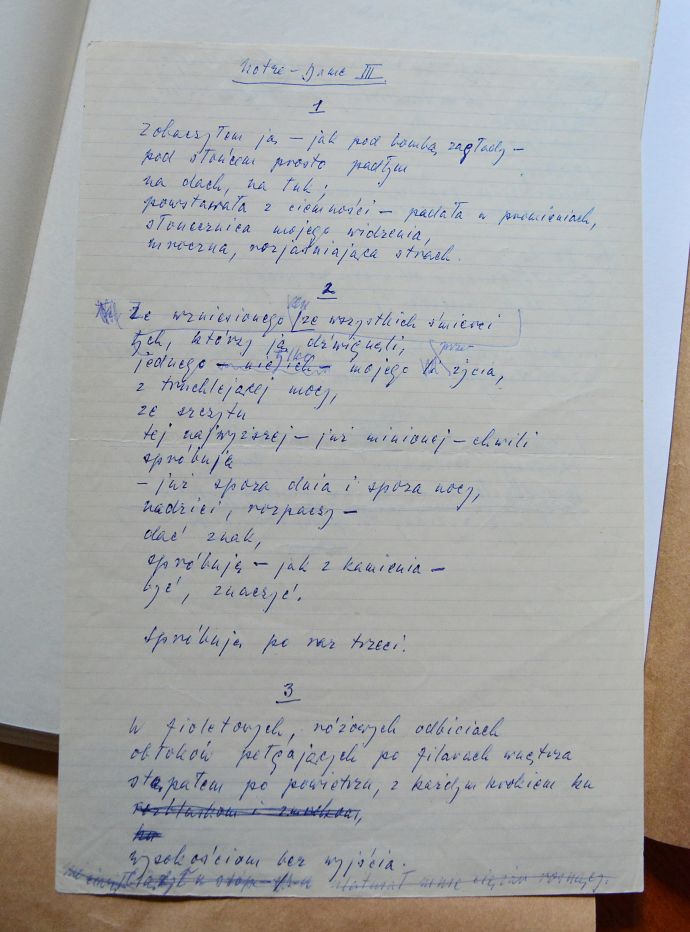 Notre-Dame III
1
Zobaczyłem ją – jak pod bombą zagłady –
pod słońcem prosto padłym
na dach, na łuk;
powstawała z ciemności – padała w promieniach,
słonecznica mojego widzenia,
mroczna, rozjaśniająca strach.
2
Ze wzniesionego ze wszystkich śmierci
tych, którzy ją dźwignęli,
przez
jednego z nich tylko mojego życia,
z truchlejącej mocy,
ze szczytu
tej najwyższej – już minionej – chwili
spróbuję
– już spoza dnia i spoza nocy,
nadziei, rozpaczy –
dać znak,
spróbuję – jak z kamienia –
być, znaczyć.
Spróbuję po raz trzeci.
3
W fioletowych, różowych odbiciach
obłoków pełgających po filarach wnętrza
stąpałem po powietrzu, z każdym krokiem ku
rozblaskom i zmrokom,
ku
wysokościom bez wyjścia.
mnie ciężar rosnący.